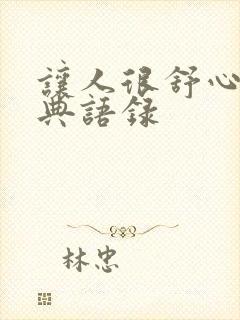 讓人很舒心
典語錄
林忠